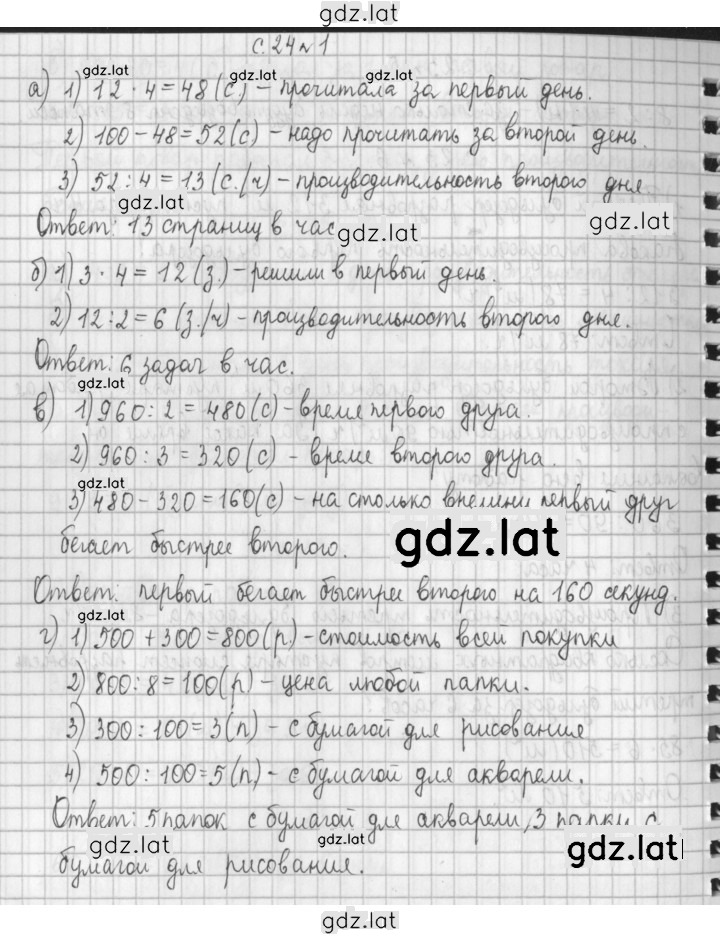 gdz.lat
с. 24 № 1
gdz.lat gdz.lat gdz.lat
а) 1) 12 · 4 = 48 (с) – прочитала за первый день.
2) 100 – 48 = 52 (с) – надо прочитать за второй день.
3) 52 : 4 = 13 (с./ч) – производительность второго дня
gdz.lat gdz.lat
Ответ: 13 страниц в час
gdz.lat
б) 1) 3 · 4 = 12 (з.) – решили в первый день.
2) 12 : 2 = 6 (з./ч) – производительность второго дня.
Ответ: 6 задач в час.
gdz.lat
в) 1) 960 : 2 = 480 (с) – время первого друга.
2) 960 : 3 = 320 (с) – время второго друга.
gdz.lat
3) 480 – 320 = 160 (с) – на столько первый друг
бегает быстрее второго.
gdz.lat
Ответ: первый бегает быстрее второго на 160 секунд.
gdz.lat
г) 1) 500 + 300 = 800 (р) – стоимость всей покупки
2) 800 : 8 = 100 (р) – цена любой папки.
3) 300 : 100 = 3 (п) – с бумагой для рисования
4) 500 : 100 = 5 (п) – с бумагой для акварели.
Ответ: 5 папок с бумагой для акварели, 3 папки с
gdz.lat gdz.lat gdz.lat
бумагой для рисования.
gdz.lat